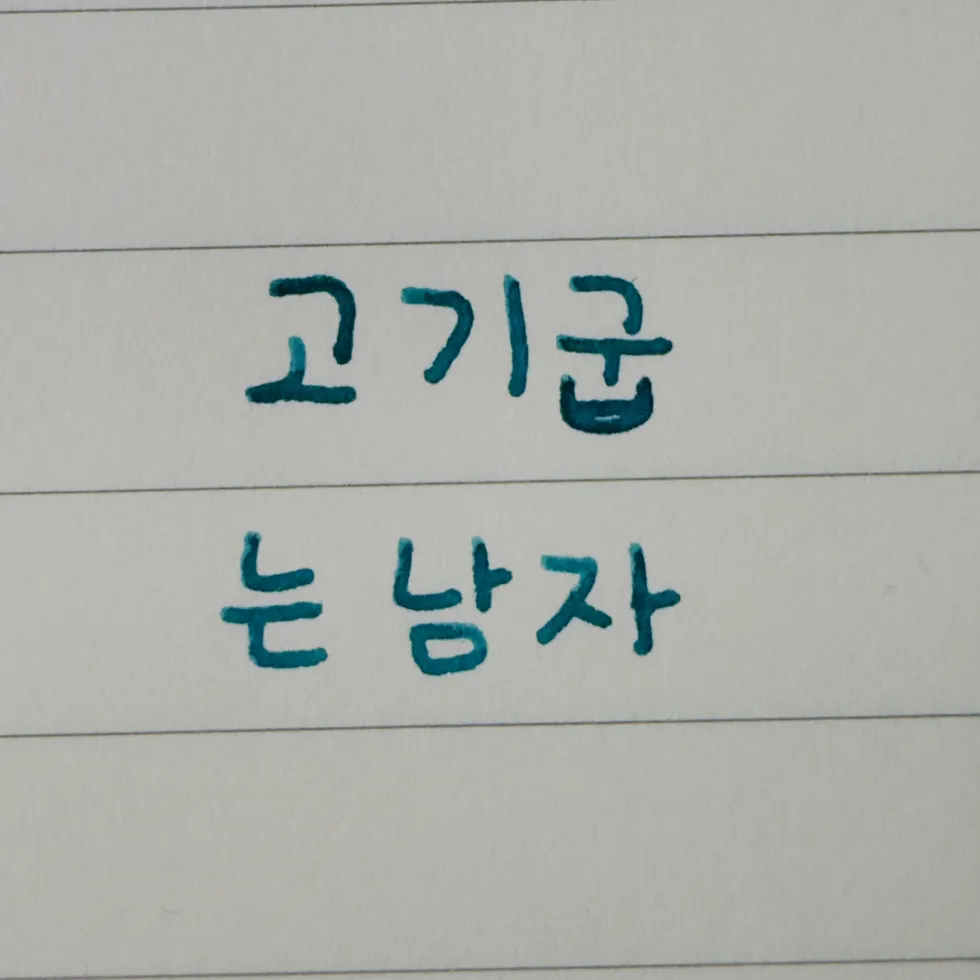 고기굽
는남자